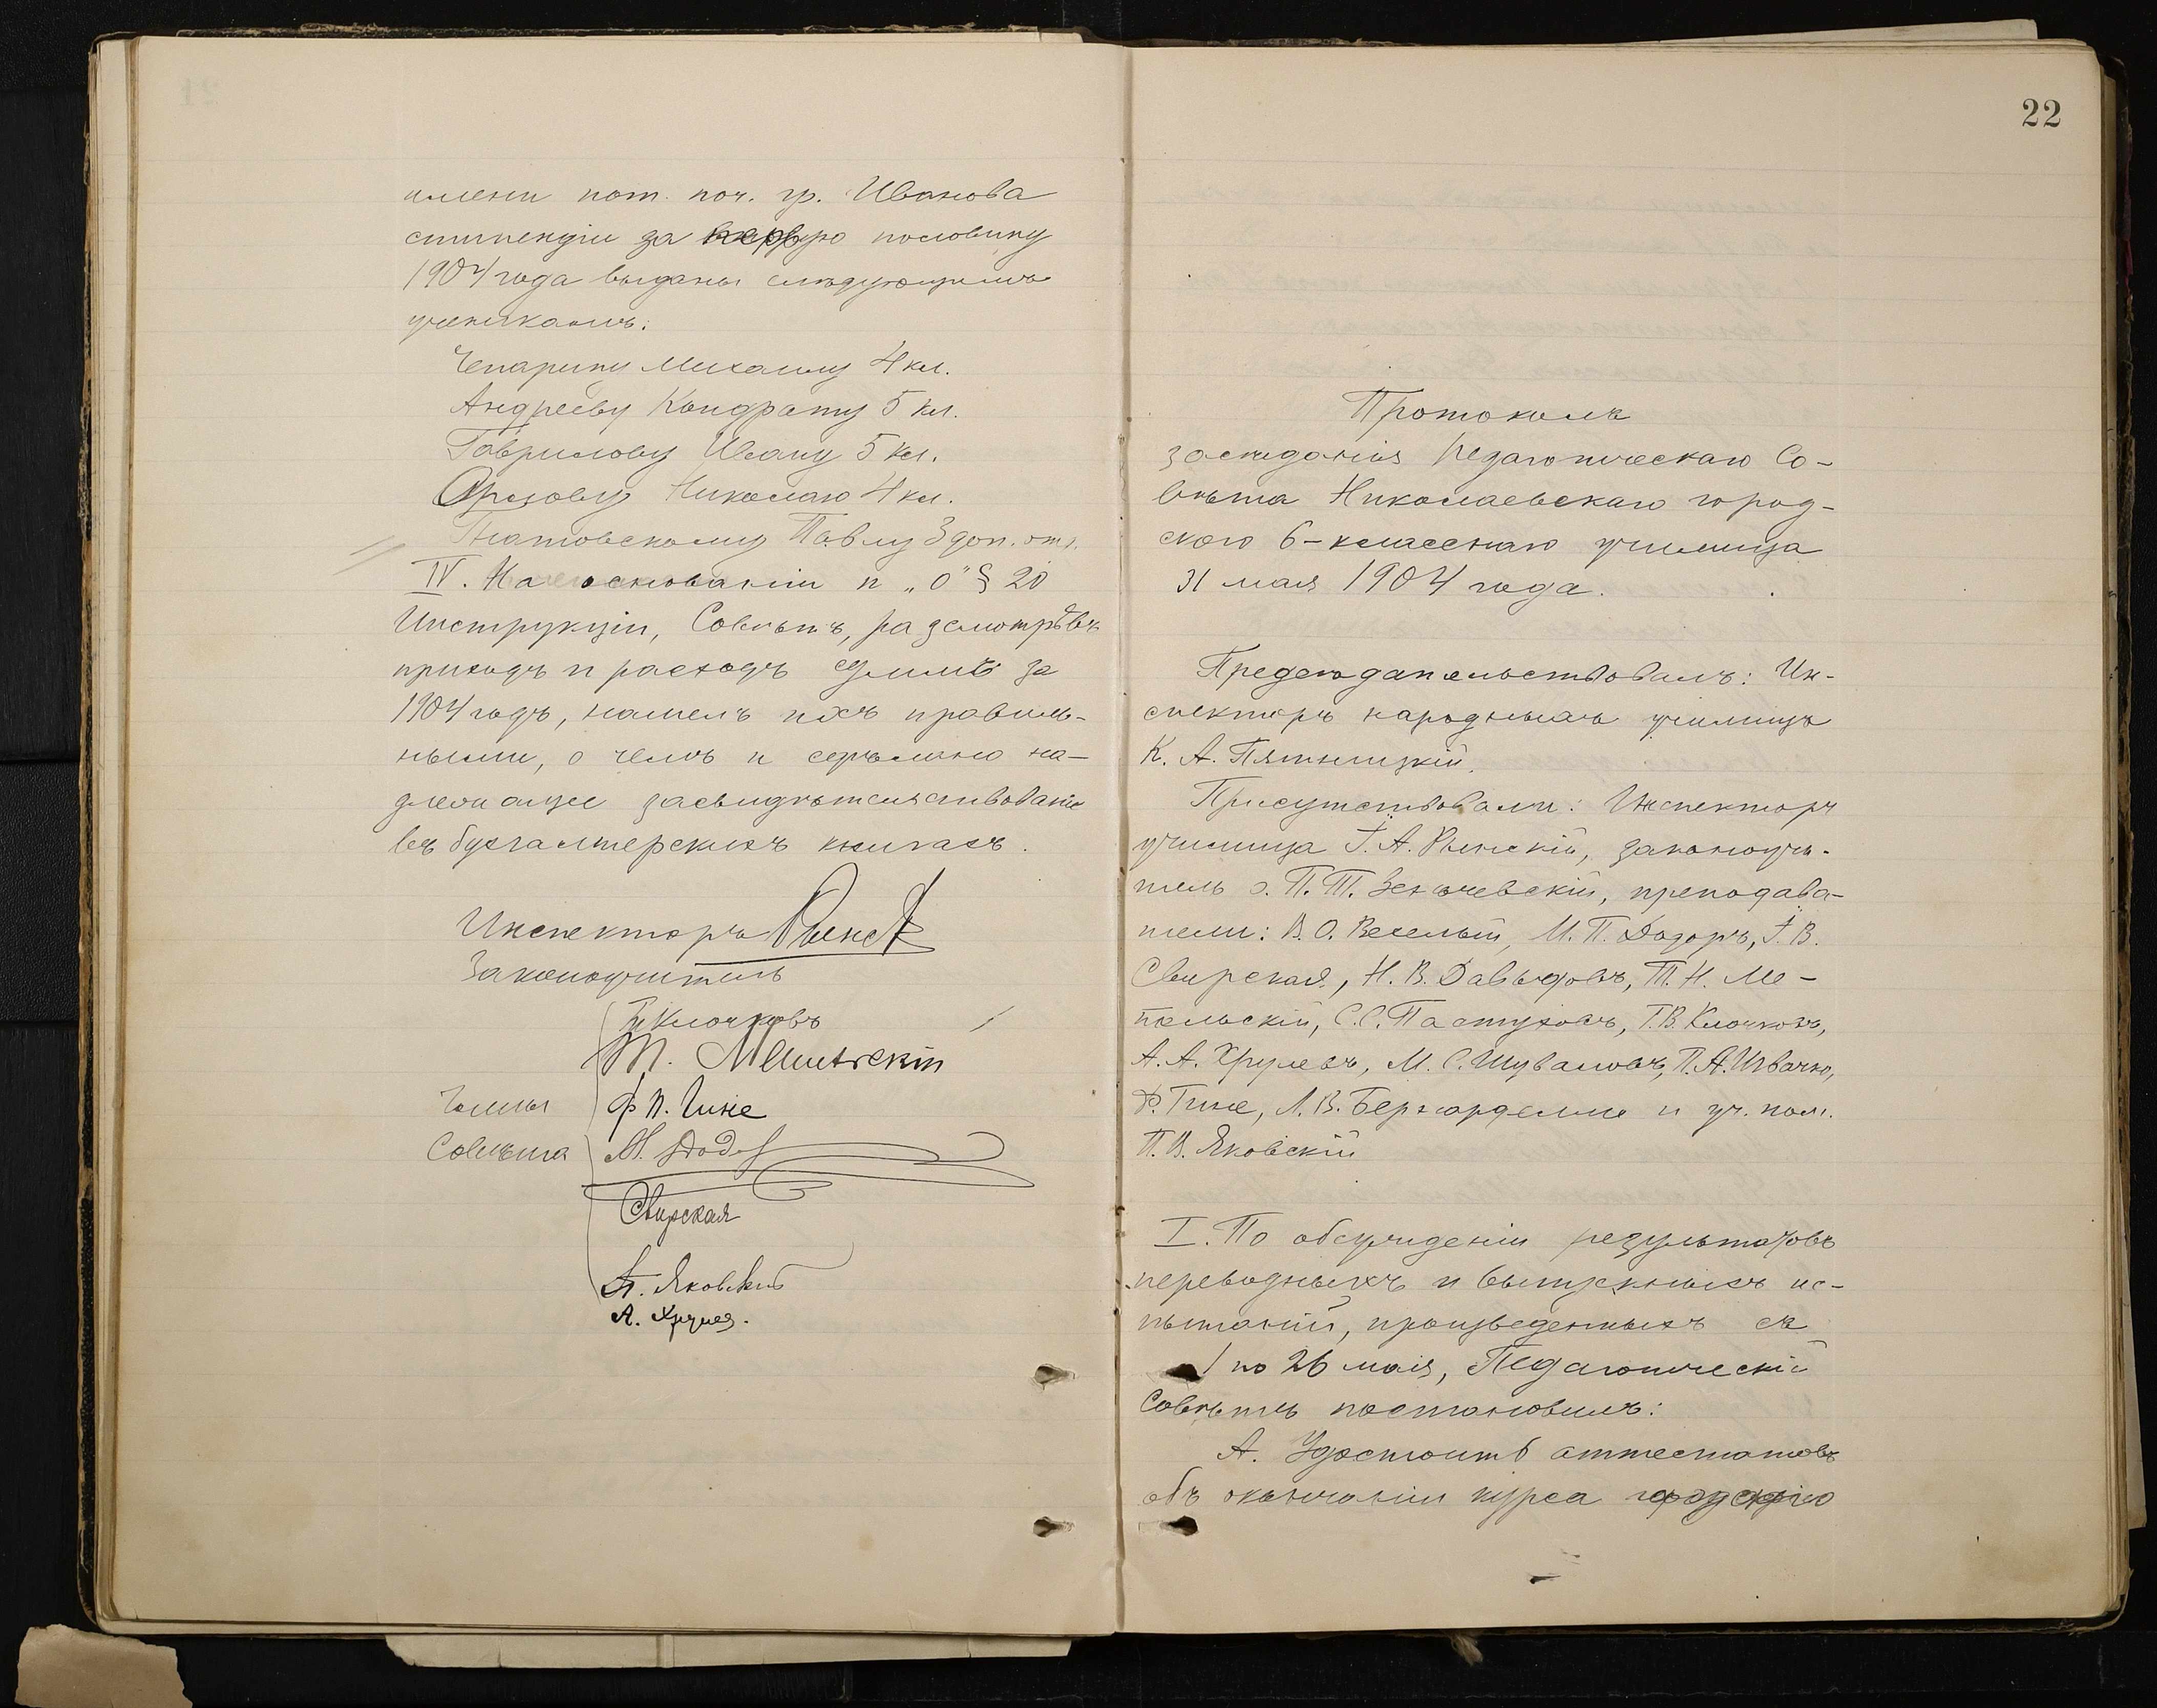 имени пот. поч. гр. Иванова
стипендіи за первую половину
1904 года выданы слѣдующимъ
ученикамъ:
Чепарину Михаилу 4 кл.
Андрееву Кондрату 5 кл.
Гаврилову Ивану 5 кл.
Николаю 4 кл.
Павлу 3 доп. отд.
IV. На основаніи п „о" § 20
Инструкціи, Совѣтъ, разсмотрѣвъ
приходъ и расходъ суммъ за
1904 годъ, нашелъ ихъ правиль-
ными, о чемъ и сдѣлано на-
длежащее засвидѣтельствованіе
въ бухгалтерскихъ книгахъ.
Инспекторъ
Законоучитель
Клочковъ
Ф П. Гине
Члены
Совѣта
Свирская
П. Яковскій
А. Хрулев.
22
Протоколъ
засѣданія Педагогическаго Со-
вѣта Николаевскаго город-
ского 6-класснаго училища
31 мая 1904 года.
Предсѣдательствовалъ: Ин-
спекторъ народныхъ училищъ
К. А. Пятницкій.
Присутствовали: Инспекторъ
училища І. А. Рынскій, законоучи-
тель о. П. Т. Зенчевскій, преподава-
тели: В. О. Веселый, М. П. Додоръ, І. В.
Свирская, Н. В. Давыдовъ, Т. Н. Ме-
тельскій, С. С. Пастуховъ, Т. В. Клочковъ,
А. А. Хрулевъ, М. С. Шуваловъ, П. А. Ивачко,
Ф. Гине, Л. В. Бернарделли и уч. пом.
П. В. Яковскій
I. По обсужденіи результатовъ
переводныхъ и выпускныхъ ис-
пытаній, произведенныхъ съ
1 по 26 мая, Педагогическій
Совѣтъ постановилъ:
А. Удостоить аттестатовъ
объ окончаніи курса городского